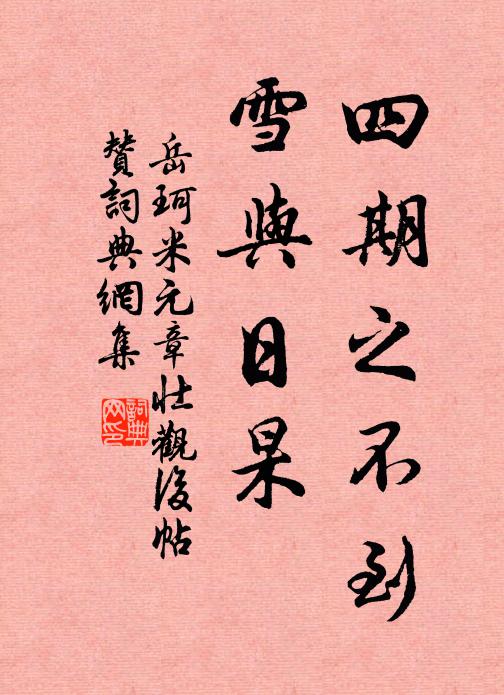 四期之不到
雪與日杲
岳珂米元章壯觀後帖
贊詞典網集
詞典
网印